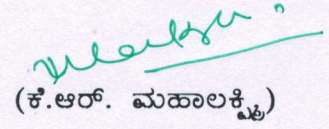 (ಕೆ.ಆರ್. ಮಹಾಲಕ್ಷ್ಮಿ)